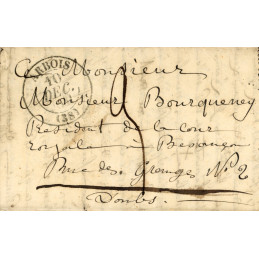 ARBOIS
10
DEC.
(38)
A Monsieur
Monsieur Bourqueney
Président de la Cour
royale a Besançon
Rue des Granges N° 2
Doubs.